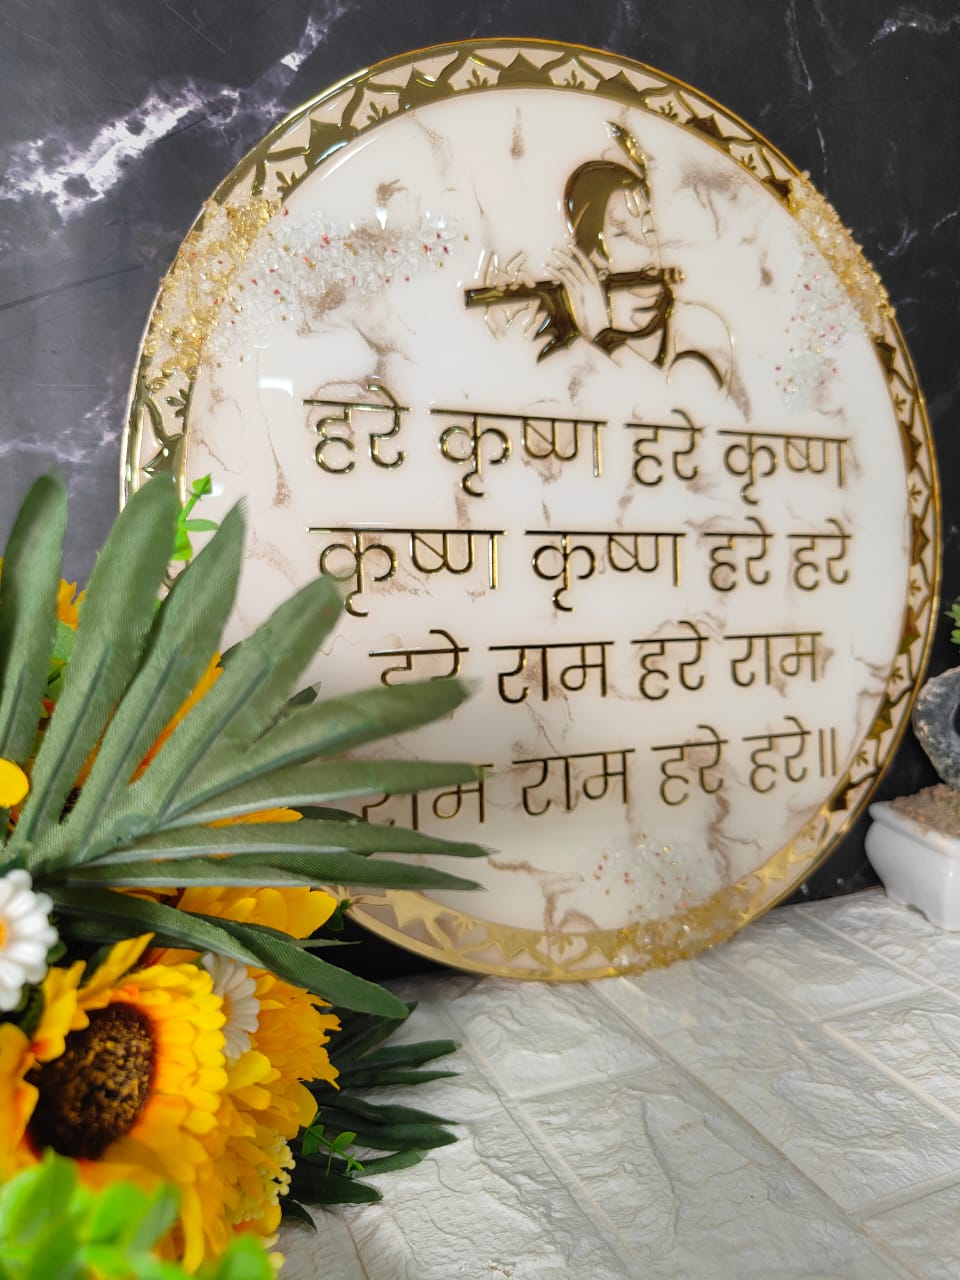 हरे कृष्ण हरे कृष्ण
कृष्ण कृष्ण हरे हरे
हरे राम हरे राम
राम राम हरे हरे॥